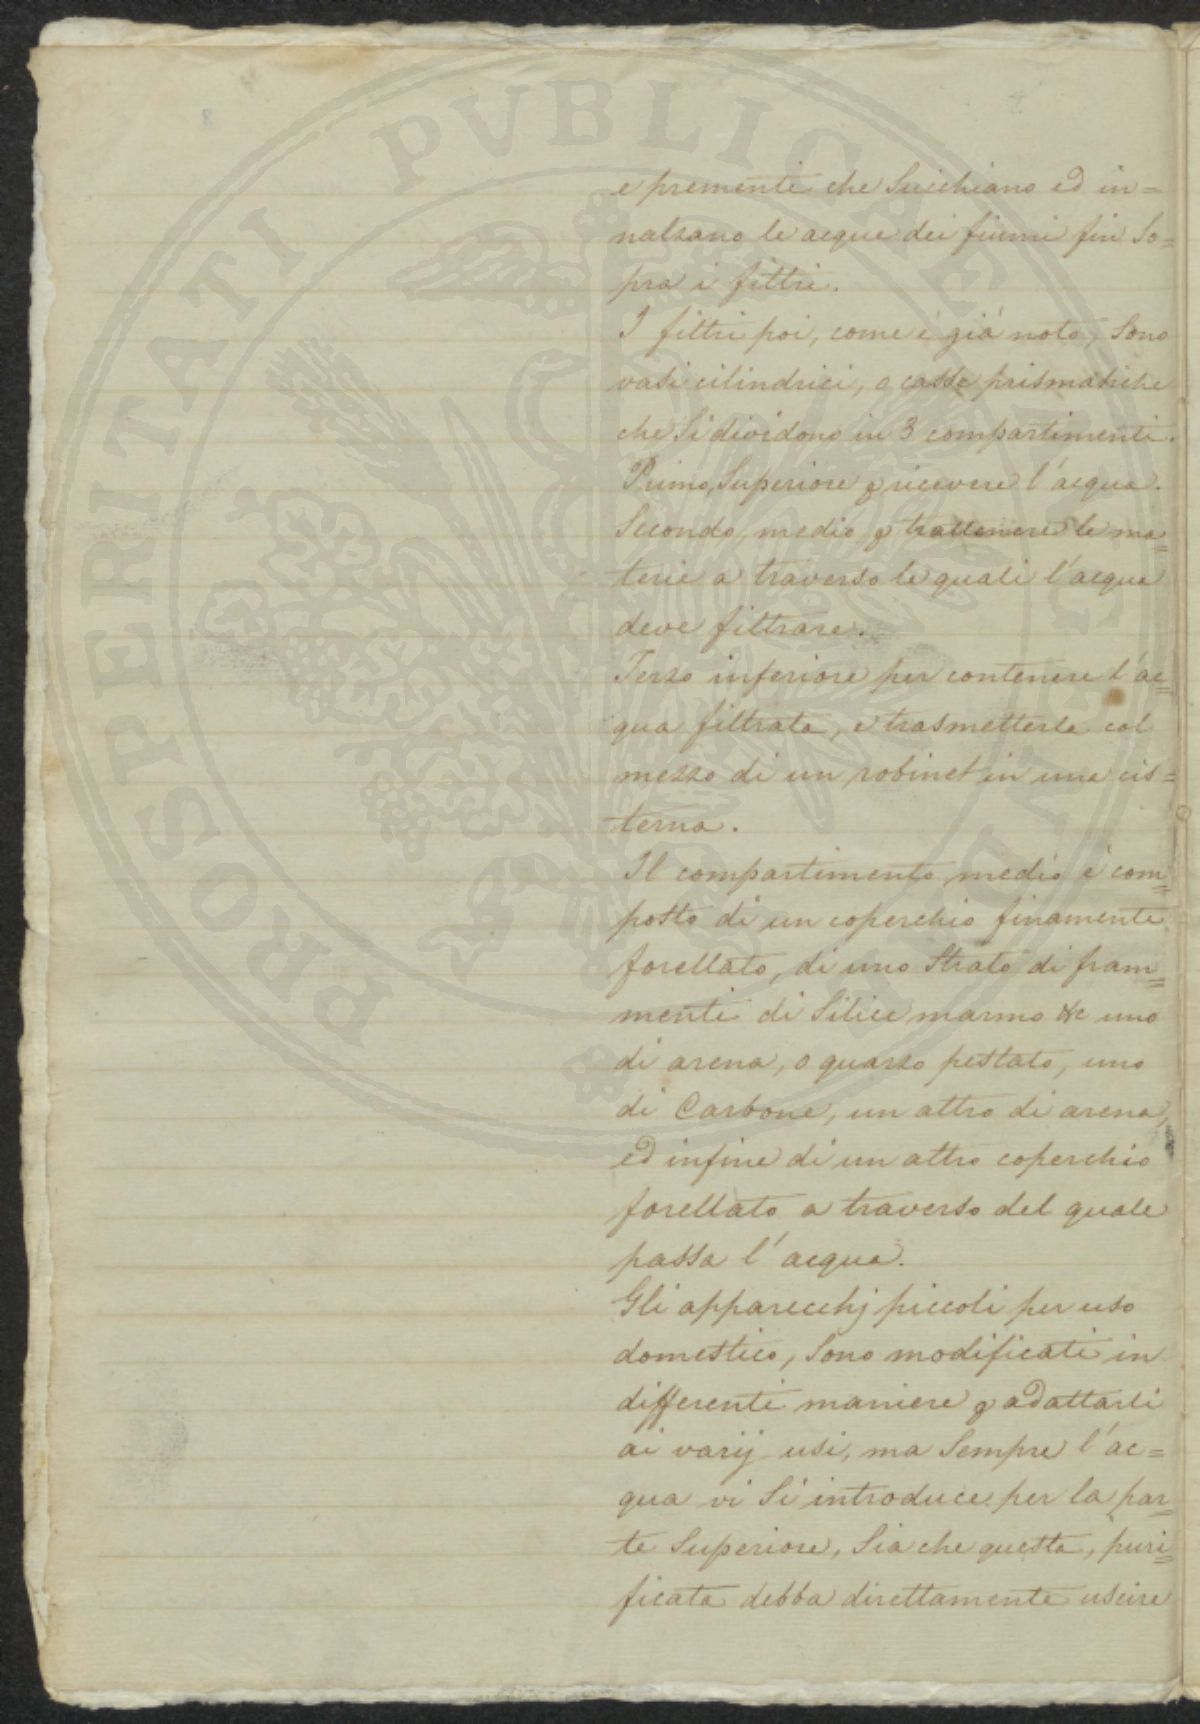 PROSPERITATI PVBLICAE AVGENDAE
e prementi che Succhiano ed in=
nalzano le acque dei fiumi fin So=
pra i filtri.
I filtri poi, come é giá noto, Sono
vasi cilindrici, o casse prismatiche
che Si dividono in 3 compartimenti.
Primo, Superiore p ricevere l'acqua.
Secondo, medio p trattenere le ma=
terie a traverso le quali l'acqua
deve filtrare.
Terzo inferiore per contenere l'ac=
qua filtrata, e trasmetterla col
mezzo di un robinet in una cis=
terna.
Il compartimento medio é com=
posto di un coperchio finamente
forellato, di uno Strato di fram=
menti di Silice marmo &c uno
di arena, o quarzo pestato, uno
di Carbone, un altro di arena,
ed infine di un altro coperchio
forellato a traverso del quale
passa l'acqua.
Gli apparecchj piccoli per uso
domestico, Sono modificati in
differenti maniere p adattarli
ai varij usi, ma Sempre l'ac=
qua vi Si introduce per la par=
te Superiore, Sia che questa, puri=
ficata debba direttamente uscire